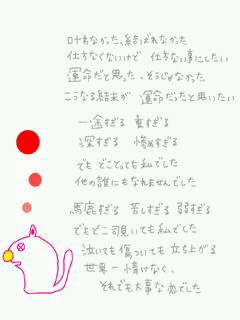 叶わなかった、結ばれなかった
仕方なくないけど 仕方ない事にしたい
運命だと思った、そうじゃなかった
こうなる結末が 運命だったと思いたい
一途すぎる 重すぎる
深すぎる 惨めすぎる
でも どこをとっても私でした
他の誰にもなれませんでした
馬鹿すぎる 苦しすぎる 弱すぎる
でもどこ覗いても私でした
泣いても傷ついても 立ち上がる
世界一 情けなく、
それでも大事な恋でした